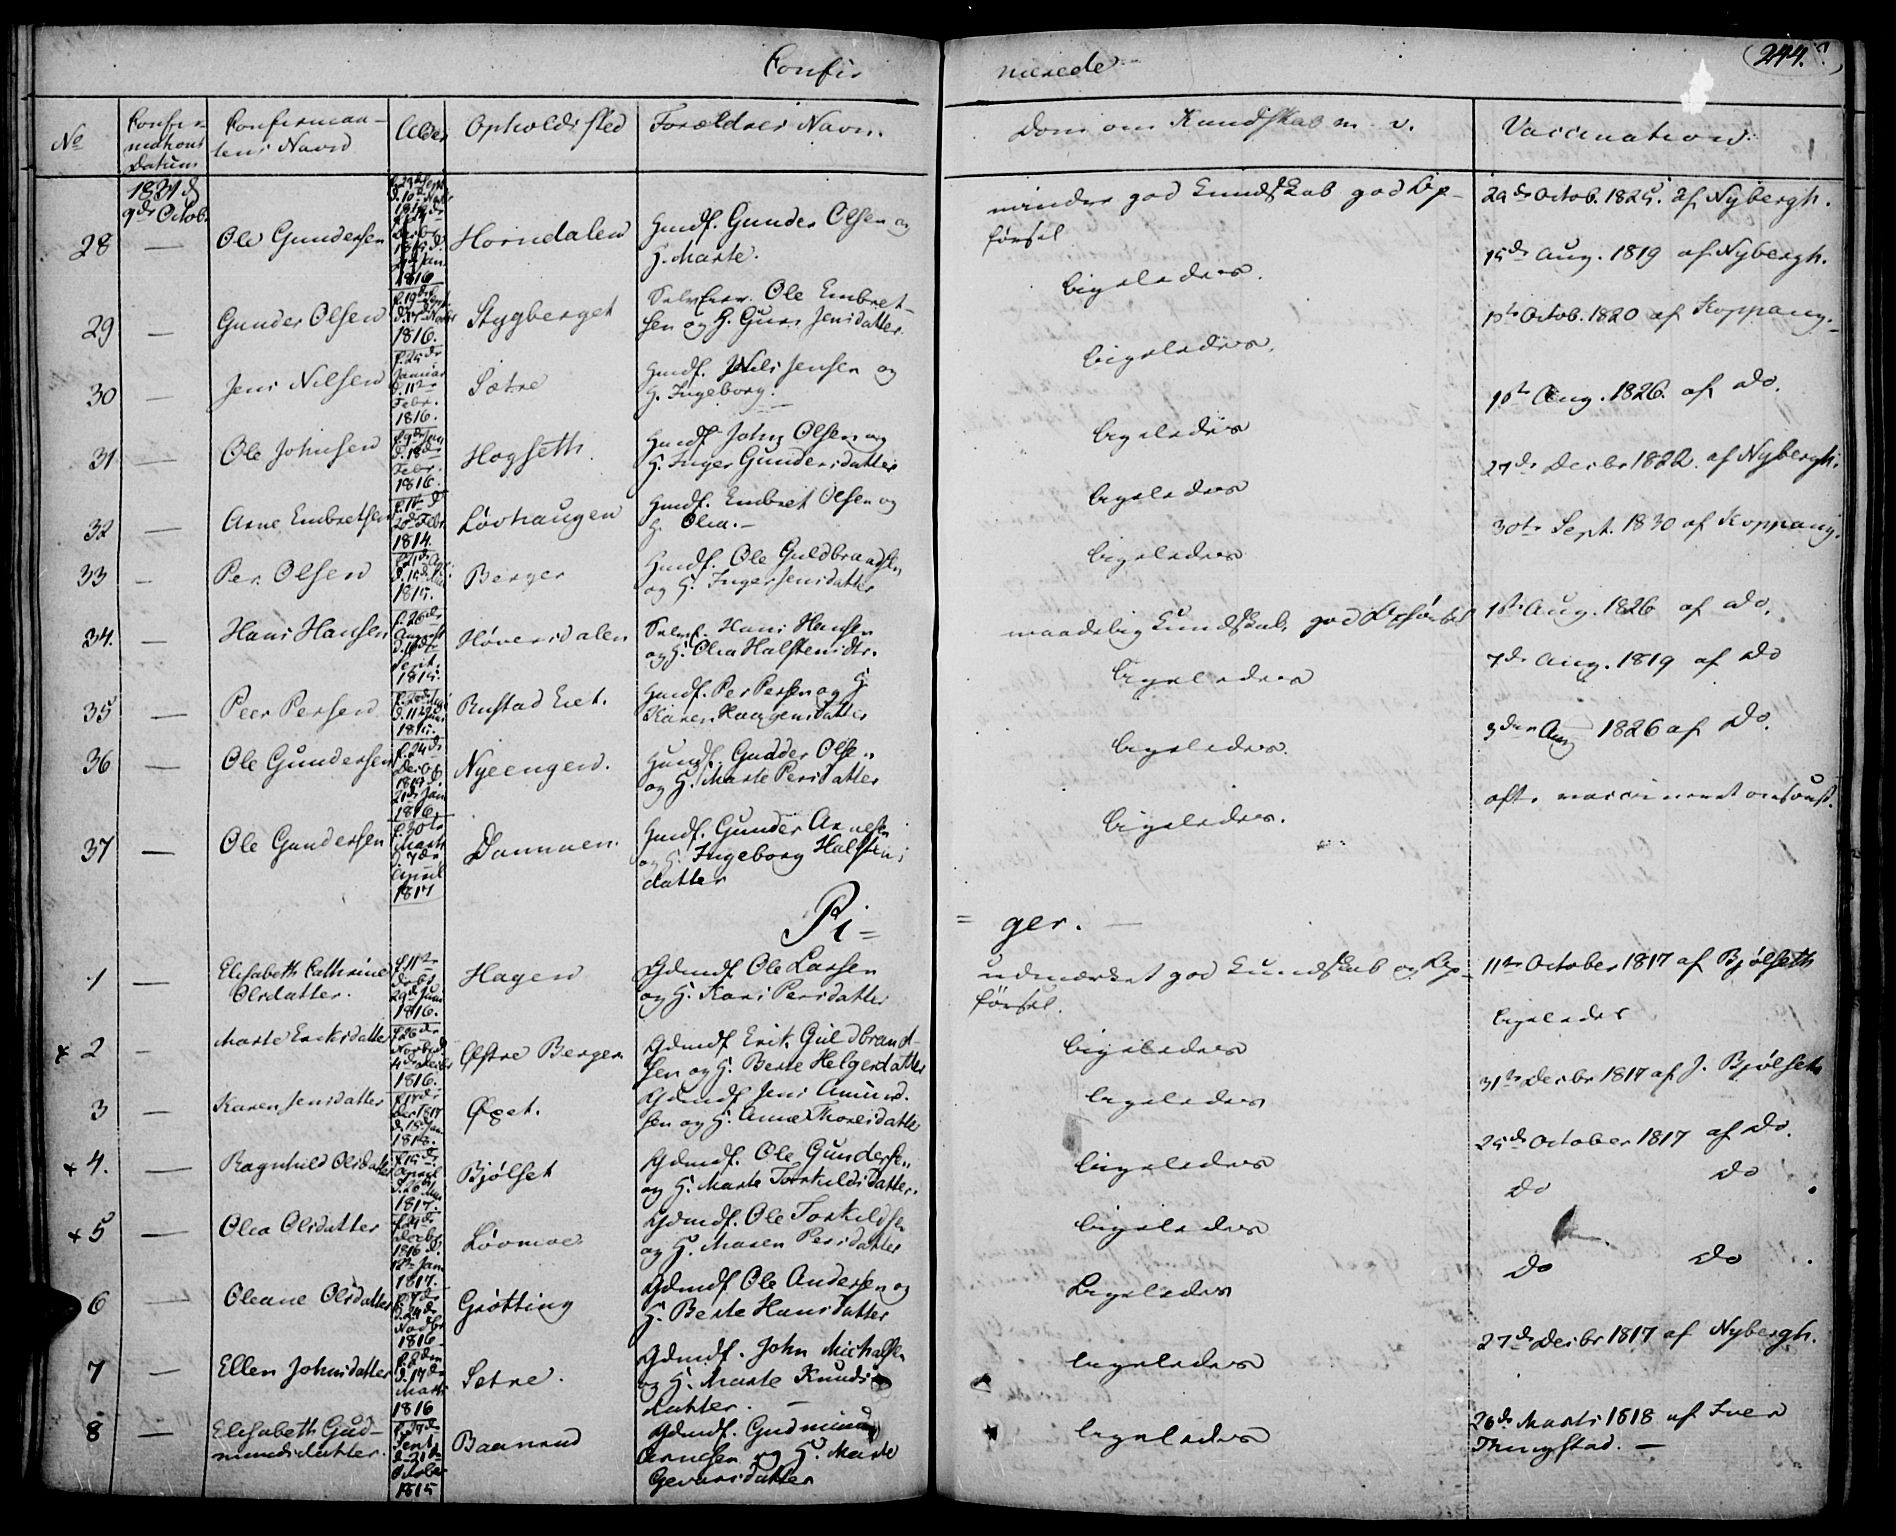 Confir
merede
244.
No
Confir-
mations
Datum
Confirman-
tens Navn
Alder
Opholdssted
Forældres Navn.
Dom om Kundskab m. v.
Vaccination.
1831 d
9de Octob.
28
—
Ole Gundersen
1816
Horndalen
Huusmd. Gunder Olsen og
H. Marte.
mindre god Kundskab god Op-
førsel
29de Octob. 1825. af Nybergh.
29
—
Gunder Olsen
1816.
Stygberget
Ole Embret-
sen og H. Guri Jensdatter
ligeledes.
15de Aug. 1819 af Nybergh.
30
—
Jens Nilsen
f. 25de
Januar
d. 11te
Febr.
1816.
Sætre
Hmdf. Nils Jensen og
H. Ingeborg.
ligeledes.
1ste Octob. 1820 af Koppang.
31
—
Ole Johnsen
d. 18de
Febr.
1816.
Hogseth.
Hmdf. John Olsen og
H. Inger Gundersdatter
ligeledes
1ste Aug. 1826. af Do.
32
—
Arne Embretsen
1814.
Løvhaugen
Hmdf. Embret Olsen og
H. Olea.
ligeledes
27de Decbr 1822. af Nybergh.
33
—
Per Olsen
1815.
Berger
Hmdf. Ole Guldbrandsen
og H. Inger Jensdatter
ligeledes
30te Sept. 1830 af Koppang.
34.
—
Hans Hansen
f. 26de
August
1815.
Høversdalen
Hans Hansen
og H. Olea Halstensdtr.
maadelig Kundskab god Opførsel
1ste Aug. 1826 af Do.
35
—
Peer Persen
1815.
Rustad Eiet.
Hmdf. Per Persen og H.
Karen Haagensdatter
ligeledes
7de Aug. 1819 af Do
36
—
Ole Gundersen
f. 24de
Decbr
21de Jan
1816
Nyeengen.
Hmdf. Gunder Olsen
og H. Marte Persdatter
ligeledes.
3die Aug 1826 af Do.
37
—
Ole Gundersen
f. 30te
Marts
d. 7de
April
1817
Dammen.
Hmdf. Gunder Arnesen
og H. Ingeborg Halstens
datter
ligeledes.
ofte vaccineret omsonst.
Pi=
= ger.
1
—
Elisabeth Cathrine
Olsdatter.
1816.
Hagen
Gdmdf. Ole Larsen
og H. Kari Persdatter
udmærket god Kundskab og Op-
førsel.
11te October 1817 af Bjølseth
x 2
—
Marte Eriksdatter
f. 26de
Novbr d.
1816.
Østre Berger
Gdmdf. Erik Guldbrand-
sen og H. Berte Helgesdatter
ligeledes
ligeledes
3
—
Karen Jensdatter
f. 17de
Dec 1817
d. 18de Jan
1818.
Øxet.
Gdmdf. Jens Amund-
sen og H. Anne Thoresdatter
ligeledes
31te Decbr 1817 af J. Bjølseth
x 4.
—
Ragnhild Olsdatter
f. 15de
April
1817.
Bjølset
Gdmdf. Ole Gundersen
og H. Marte Torkildsdatter.
ligeledes
25de October 1817 af Do.
x 5
—
Olea Olsdatter
Decbr
1816 d.
12te Jan
1817.
Løvmoe
Gdmdf. Ole Torkildsen
og H. Maren Persdatter
ligeledes
Do Do
6
—
Oleane Olsdatter
f. 7de
d. 24de
Novbr
1816
Grøtting
Gdmdf. Ole Andersen og
H. Berte Hansdatter
Ligeledes
Do Do
7
—
Ellen Johnsdatter
f. 2den
d. 17de
Marts
1816
Sætre.
Gdmdf. John Michalsen
og H. Marte Knuds-
datter.
ligeledes
27de Decbr 1817 af Nybergh.
8
—
Elisabeth Gud-
mundsdatter.
Sept
October
1815
Baanrud
Gdmdf. Gudmund
Arnesen og H. Marte
Gevarsdatter
ligeledes
26de Marts 1818 af Iver
Thingstad. —